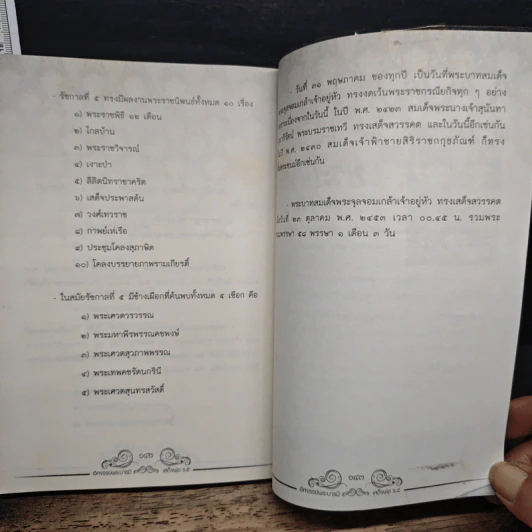 - รัชกาลที่ ๕ ทรงมีผลงานพระราชนิพนธ์ทั้งหมด ๑๐ เรื่อง
๑) พระราชพิธี ๑๒ เดือน
๒) ไกลบ้าน
๓) พระราชวิจารณ์
๔) เงาะป่า
๕) ลิลิตนิทราชาคริต
๖) เสด็จประพาสต้น
๗) วงศ์เทวราช
๘) กาพย์เห่เรือ
๙) ประชุมโคลงสุภาษิต
๑๐) โคลงบรรยายภาพรามเกียรติ์
- ในสมัยรัชกาลที่ ๕ มีช้างเผือกที่ค้นพบทั้งหมด ๕ เชือก คือ
๑) พระเศวตวรวรรณ
๒) พระมหาพีรพรรณคชพงษ์
๓) พระเศวตสุวภาพพรรณ
๔) พระเทพคชรัตนกรินี
๕) พระเศวตสุนทรสวัสดิ์
- วันที่ ๓๑ พฤษภาคม ของทุกปี เป็นวันที่พระบาทสมเด็จ
จุลจอมเกล้าเจ้าอยู่หัว ทรงงดเว้นพระราชกรณียกิจทุก ๆ อย่าง
เนื่องจากในวันนี้ ในปี พ.ศ. ๒๔๒๓ สมเด็จพระนางเจ้าสุนันทา
พระบรมราชเทวี ทรงเสด็จสวรรคต และในวันนี้อีกเช่นกัน
ปี พ.ศ. ๒๔๓๐ สมเด็จเจ้าฟ้าชายสิริราชกกุธภัณฑ์ ก็ทรง
อีกเช่นกัน
- พระบาทสมเด็จพระจุลจอมเกล้าเจ้าอยู่หัว ทรงเสด็จสวรรคต
วันที่ ๒๓ ตุลาคม พ.ศ. ๒๔๕๓ เวลา ๐๐.๔๕ น. รวมพระ
๕๘ พรรษา ๑ เดือน ๓ วัน